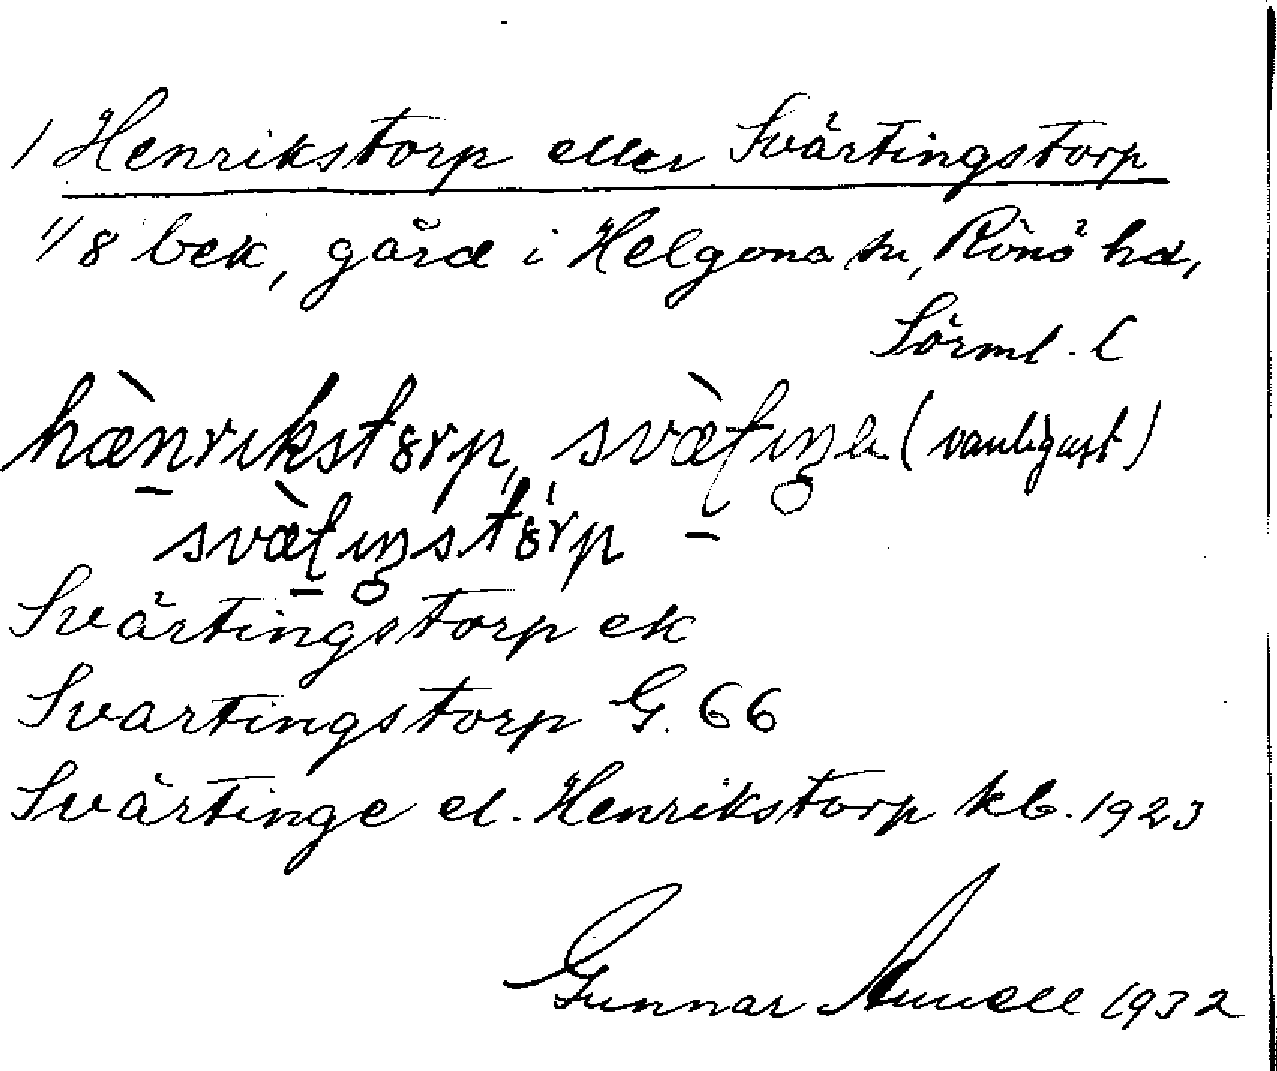 1 Henrikstorp eller Svärtingstorp
1/8 bek, gård i Helgona sn, Rönö hd,
Sörml. l
hæ̀nrikstørp, svæ̀ʈiŋə (vanligast)
svæ̀ʈiŋstørp
Svärtingstorp ek
Svartingstorp G. 66
Svärtinge el. Henrikstorp kb. 1923
Gunnar 1932